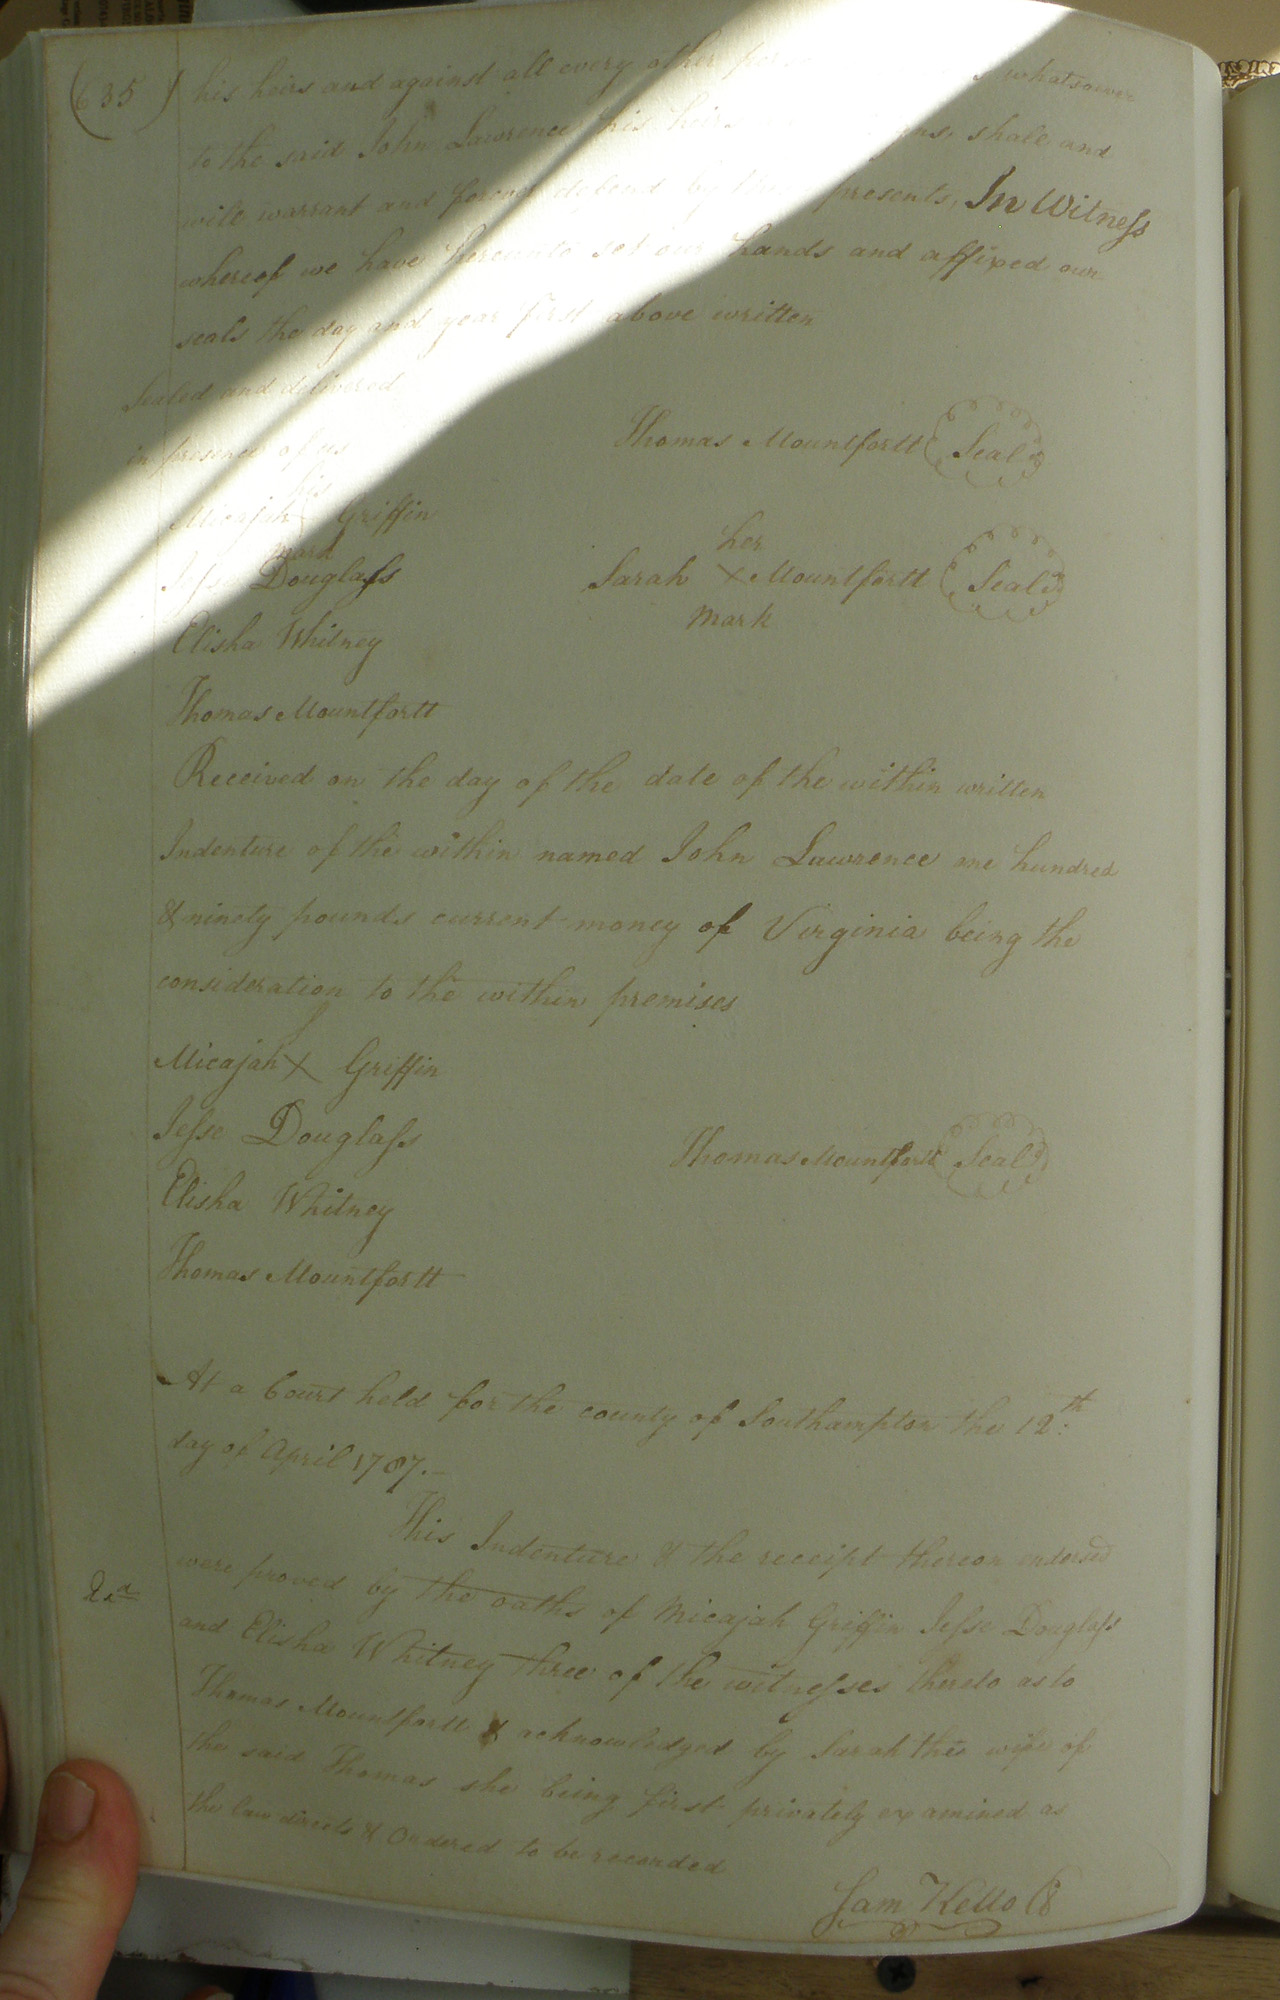 (635)
his heirs and against all every other whatsoever
to the said John Lawrence his heirs shall and
will warrant and forever defend by these presents, In Witneſs
whereof we have hereunto set our hands and affixed our
seals the day and year first above written
Sealed and delivered
in presence of us
Thomas Mountfortt Seal
his
Micajah Griffin
mark
Jeſse Douglaſs
her
Sarah X Mountfortt Seal
mark
Elisha Whitney
Thomas Mountfortt
Received on the day of the date of the within written
Indenture of the within named John Lawrence one hundred
& ninety pounds current money of Virginia being the
consideration to the within premises
Micajah X Griffin
Jeſse Douglaſs
Thomas Mountfortt Seal
Elisha Whitney
Thomas Mountfortt
At a Court held for the county of Southampton the 12th
day of April 1787.
This Indenture & the receipt thereon endorsed
were proved by the oaths of Micajah Griffin Jeſse Douglaſs
and Elisha Whitney three of the witneſses thereto as to
Thomas Mountfortt & acknowledged by Sarah the wife of
the said Thomas she being first privately examined as
the law directs & Ordered to be recorded
Sam Kello